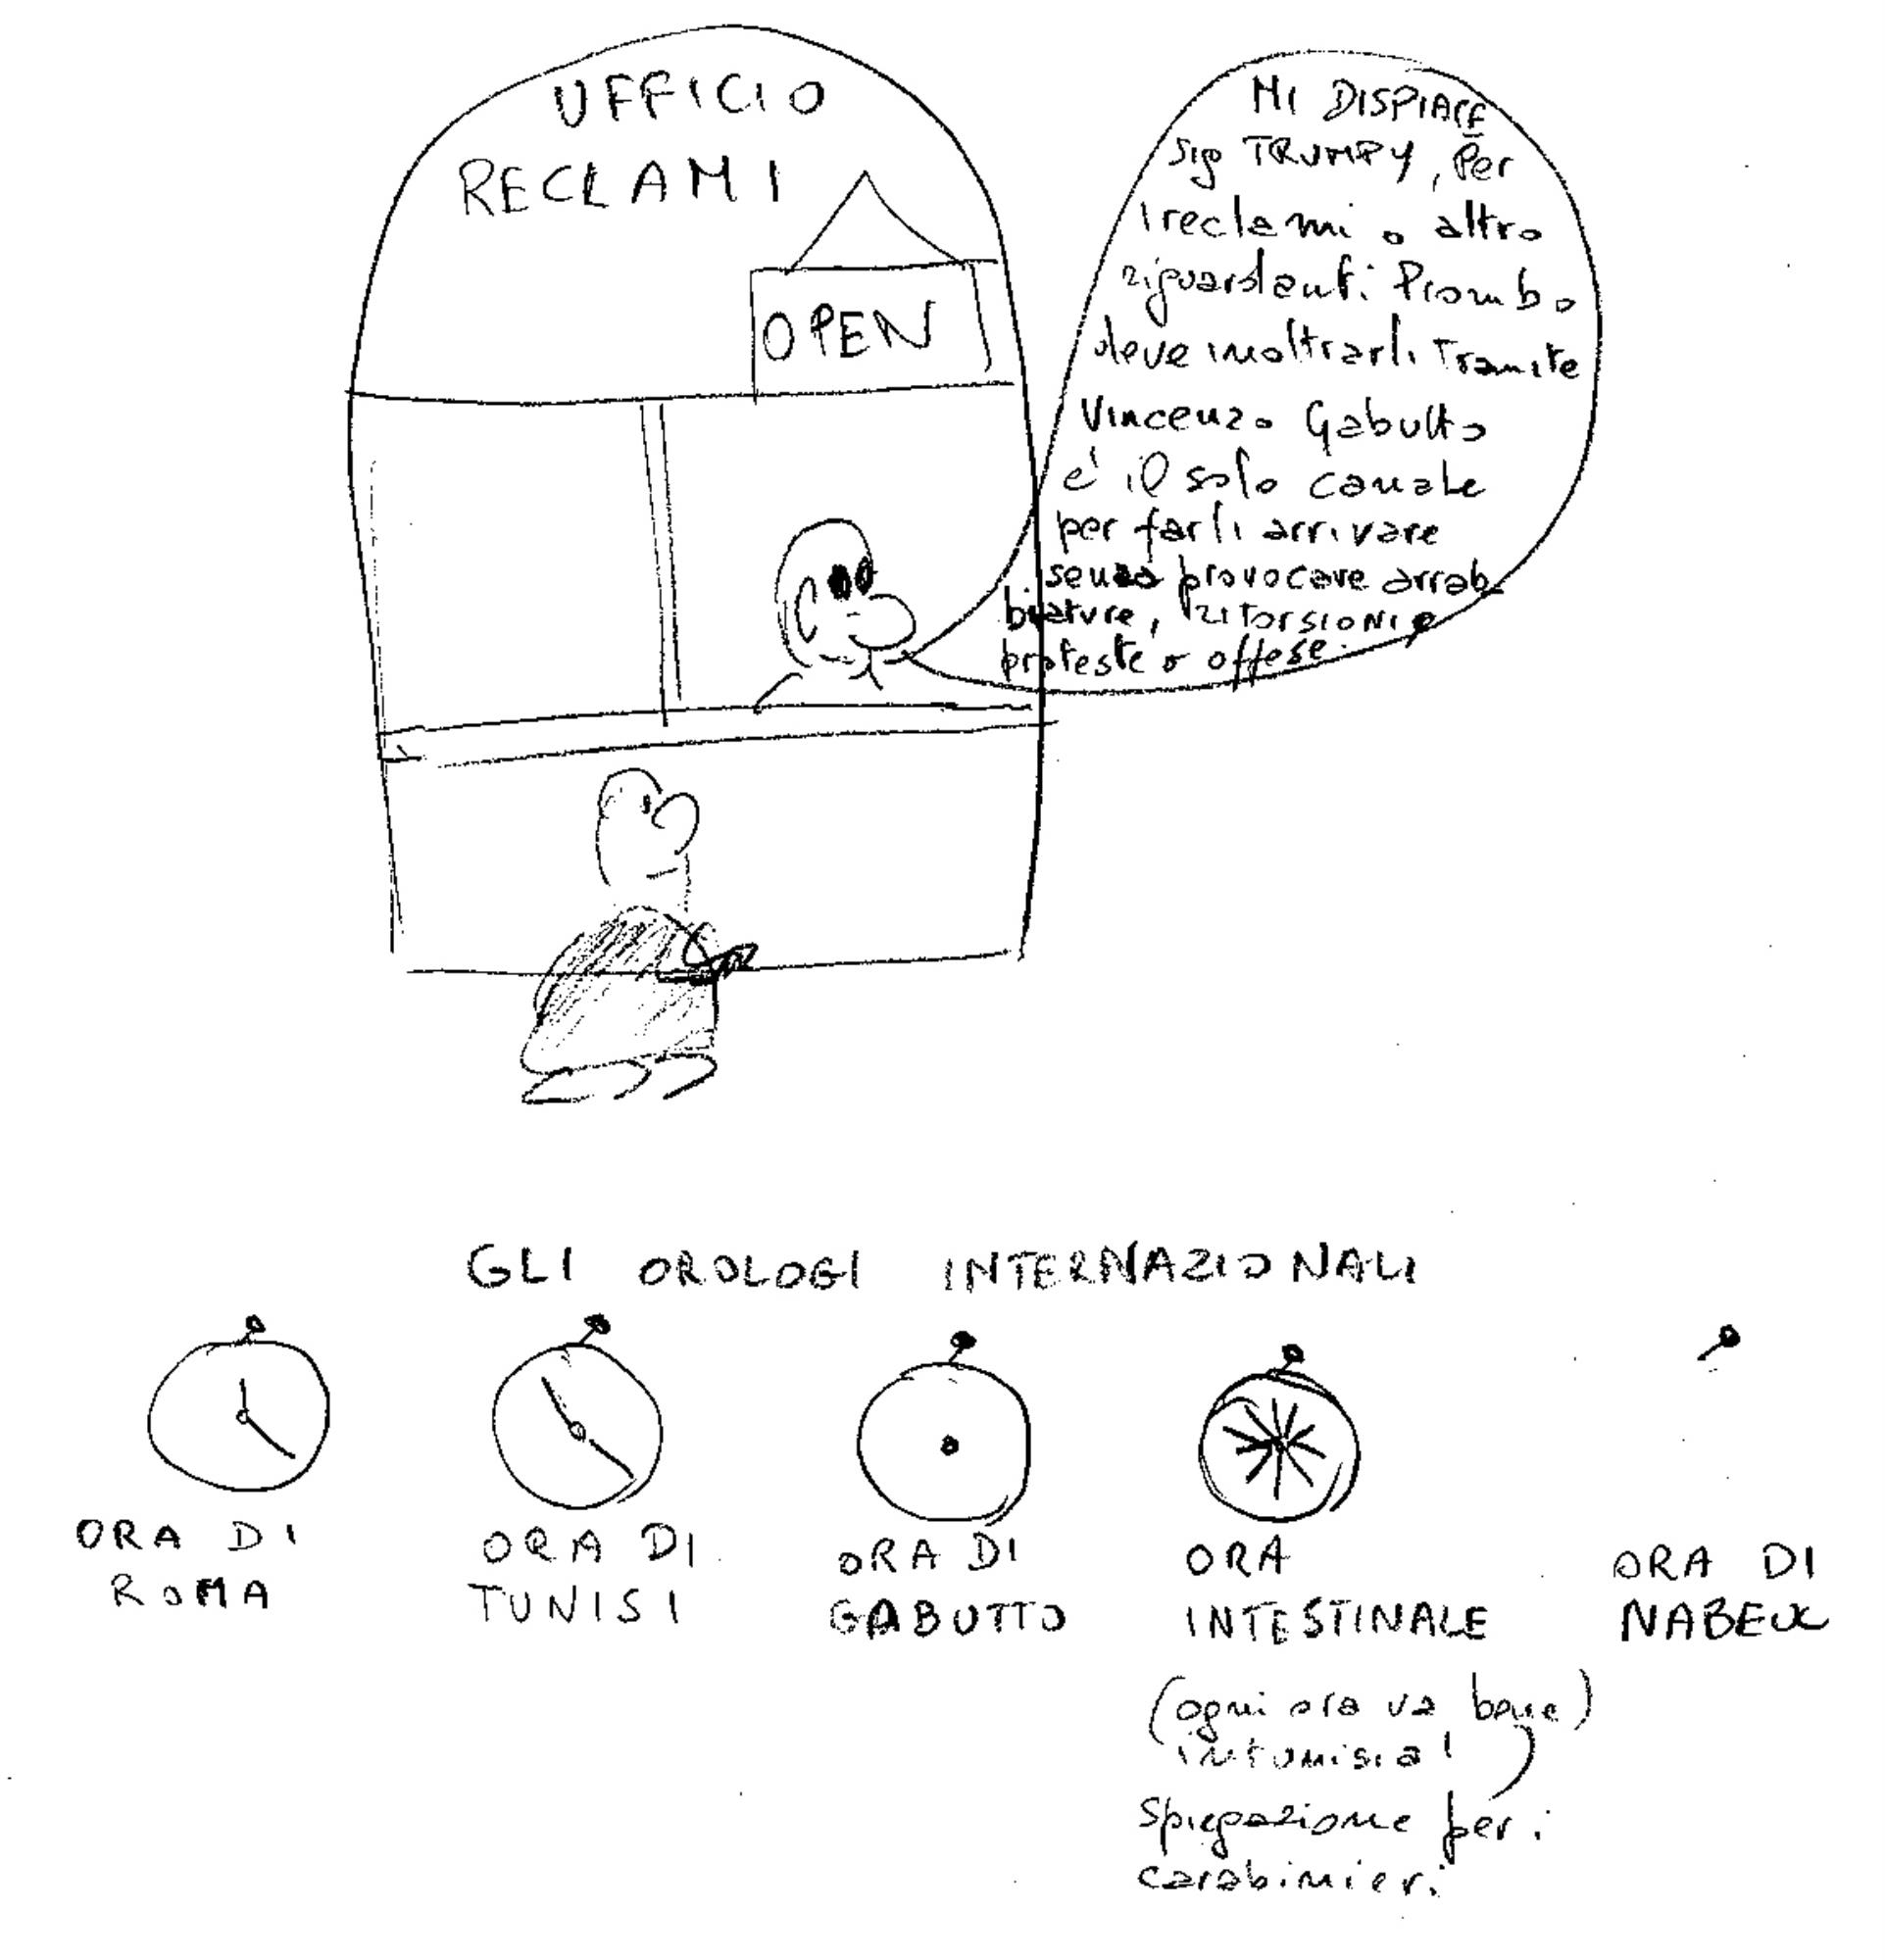 UFFICIO
RECLAMI
OPEN
MI DISPIACE
Sig TRUMPY, Per
i reclami o altro
riguardanti Piombo
deve inoltrarli Tramite
Vincenzo Gabutto
e' il solo canale
per farli arrivare
senza provocare arrab
biature, ritorsioni e
proteste o offese.
GLI OROLOGI INTERNAZIONALI
ORA DI
ROMA
ORA DI
TUNISI
ORA DI
GABUTTO
ORA
INTESTINALE
(ogni ora va bene)
in tunisia!
Spiegazione per i
carabinieri
ORA DI
NABEUL